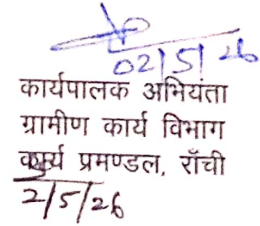 02/5/26
कार्यपालक अभियंता
ग्रामीण कार्य विभाग
कार्य प्रमण्डल, राँची
2/5/26